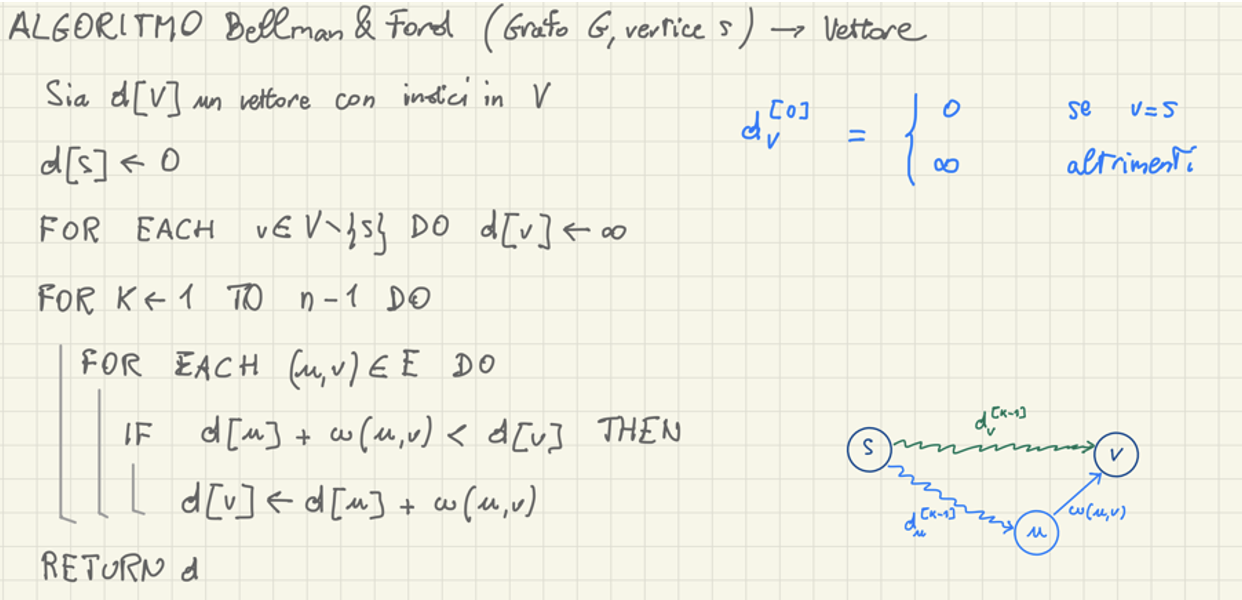 ALGORITMO Bellman & Ford (Grafo G, vertice s) → Vettore
Sia d[V] un vettore con indici in V
d[s] ← 0
FOR EACH v ∈ V \ {s} DO d[v] ← ∞
FOR K ← 1 TO n - 1 DO
FOR EACH (u,v) ∈ E DO
IF d[u] + ω(u,v) < d[v] THEN
d[v] ← d[u] + ω(u,v)
RETURN d
d_v^[0] = { 0 se v=s
∞ altrimenti
d_v^[K-1]
S
V
d_u^[K-1]
ω(u,v)
u